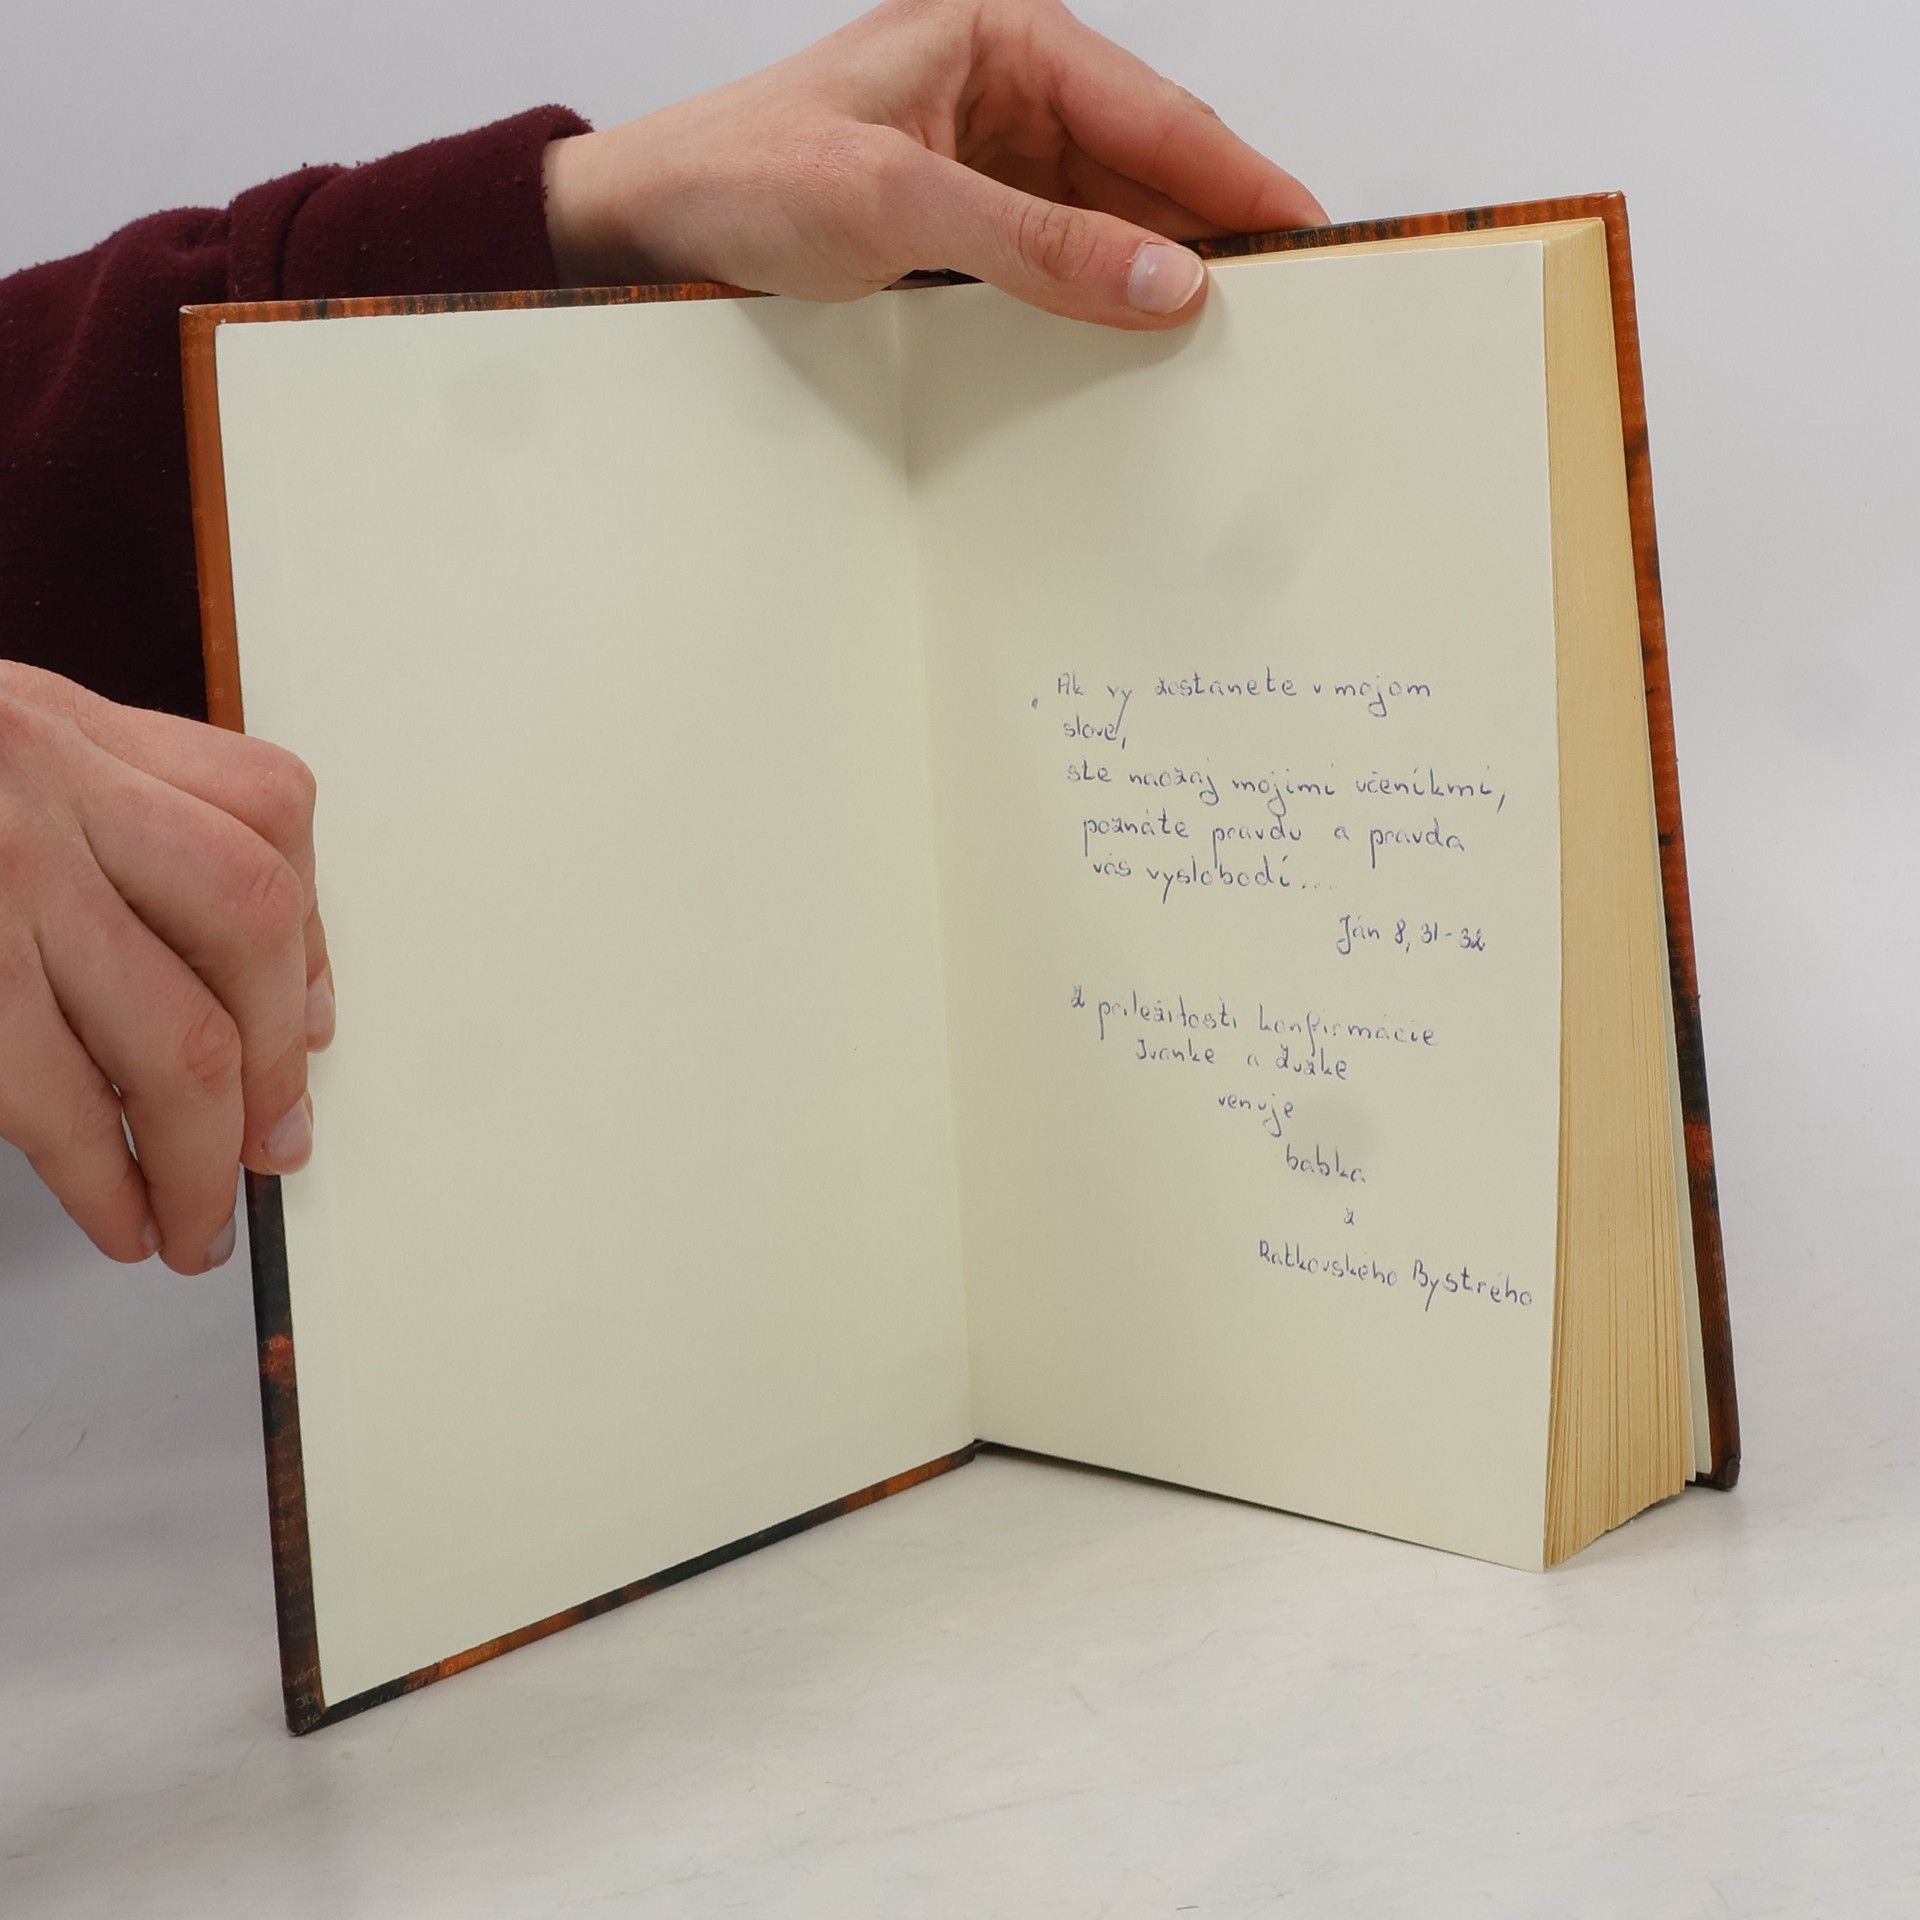 „Ak vy zostanete v mojom
slove,
ste naozaj mojimi učeníkmi,
poznáte pravdu a pravda
vás vyslobodí....
Ján 8, 31-32
Z príležitosti konfirmácie
Ivanke a Zuzke
venuje
babka
z
Ratkovského Bystrého